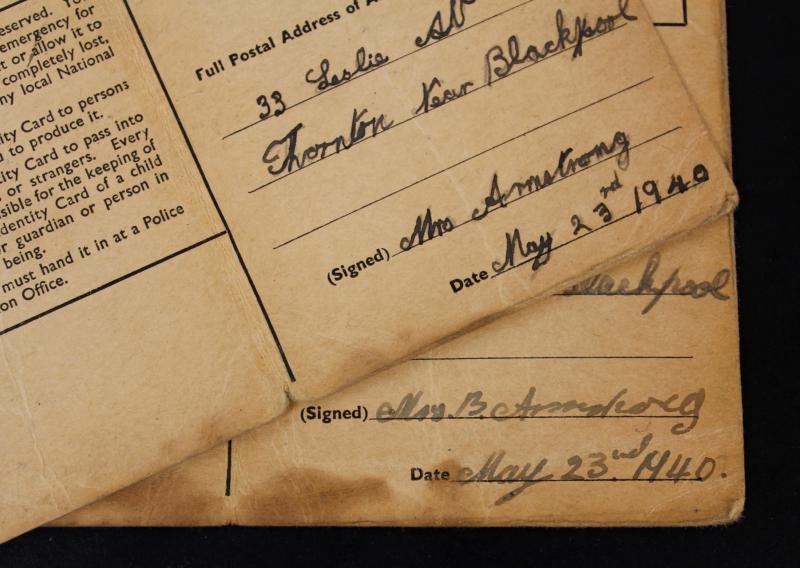 eserved. Yo
emergency for
t or allow it to
completely lost,
ny local National
ity Card to persons
d to produce it.
ity Card to pass into
, or strangers. Every
sible for the keeping of
dentity Card of a child
r guardian or person in
being.
must hand it in at a Police
on Office.
Full Postal Address of A
33 Leslie Av
Thornton Near Blackpool
(Signed) Mrs Armstrong
Date May 23rd 1940
Blackpool
(Signed) Mrs. B. Armstrong
Date May 23rd. 1940.